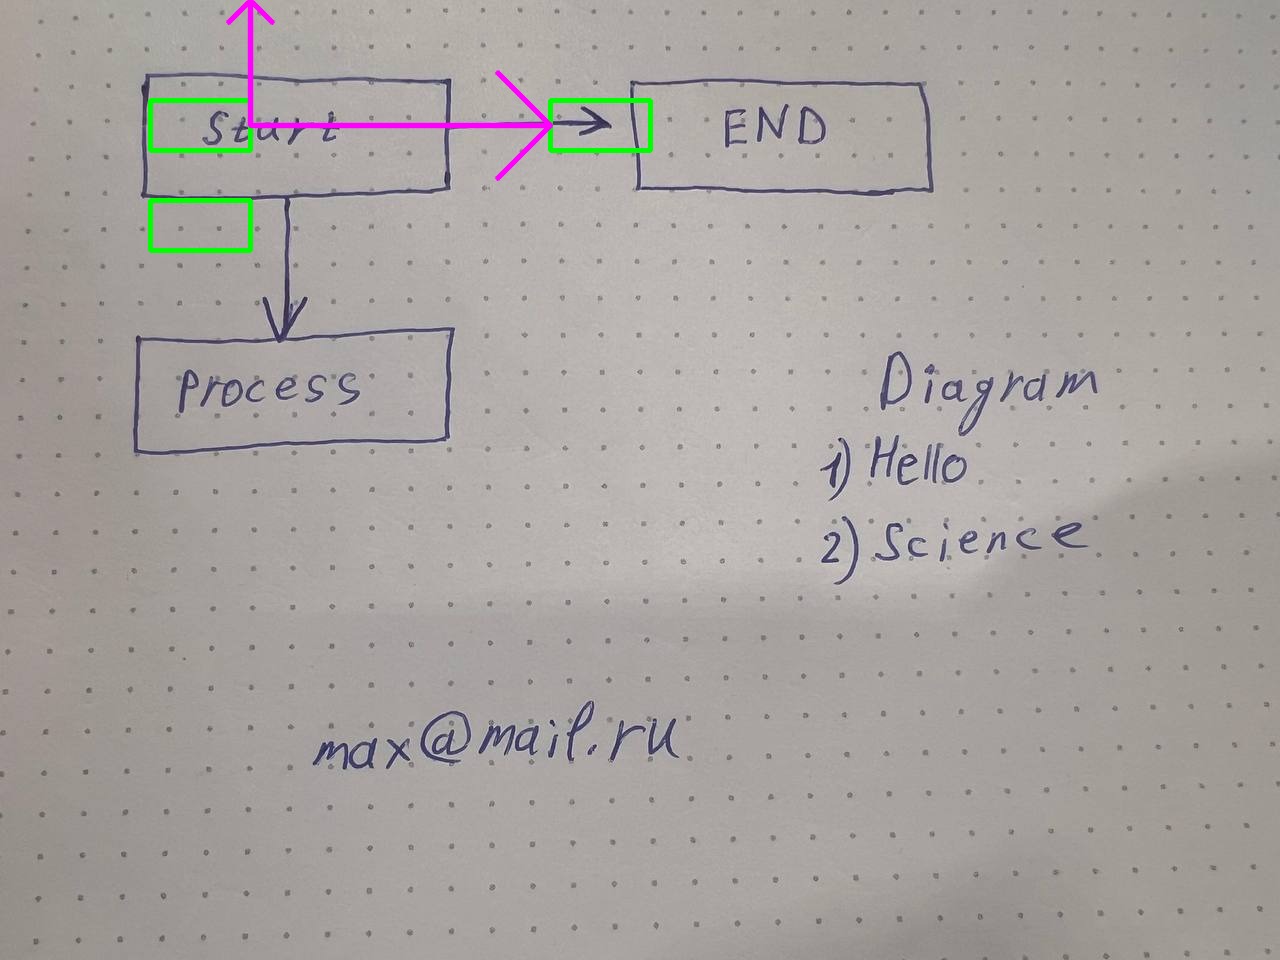 Start
END
Process
Diagram
1) Hello
2) Science
max@mail.ru